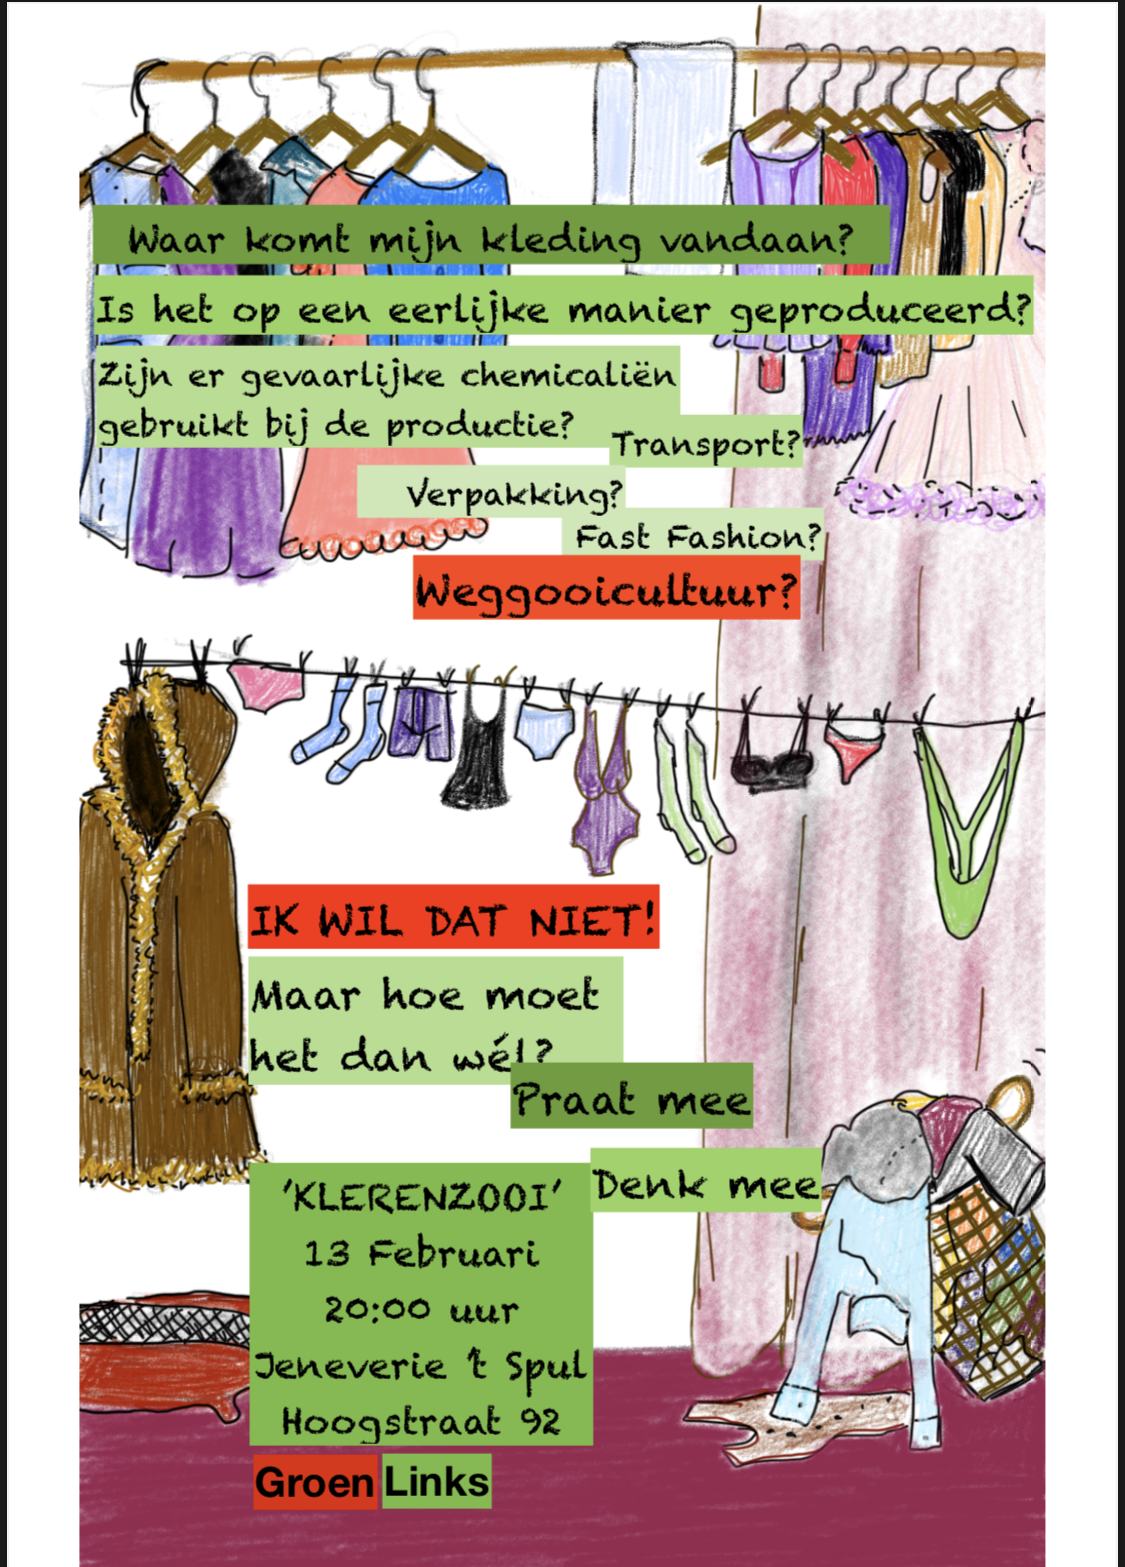 Waar komt mijn kleding vandaan?
Is het op een eerlijke manier geproduceerd?
Zijn er gevaarlijke chemicaliën
gebruikt bij de productie?
Transport?
Verpakking?
Fast Fashion?
Weggooicultuur?
IK WIL DAT NIET!
Maar hoe moet
het dan wél?
Praat mee
Denk mee
'KLERENZOOI'
13 Februari
20:00 uur
Jeneverie 't Spul
Hoogstraat 92
Groen Links